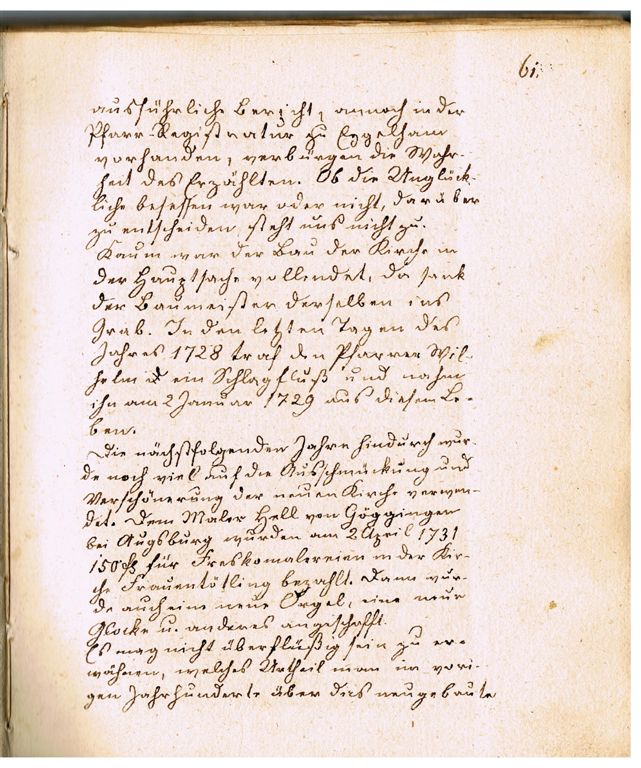 61.
ausführliche Bericht, annoch in der
Pfarr-Registratur zu Eggelham
vorhanden, verbürgen die Wahr-
heit des Erzählten. Ob die Unglück-
liche besessen war oder nicht, darüber
zu entscheiden, steht uns nicht zu.
Kaum war der Bau der Kirche in
der Hauptsache vollendet, da sank
der Baumeister derselben ins
Grab. In den letzten Tagen des
Jahres 1728 traf den Pfarrer Wil-
helm ein Schlagfluß und nahm
ihn am 2 Januar 1729 aus diesem Le-
ben.
Die nächstfolgenden Jahre hindurch wur-
de noch viel auf die Ausschmückung und
Verschönerung der neuen Kirche verwen-
det. Dem Maler Hell von Göggingen
bei Augsburg wurden am 2 April 1731
150 fl für Freskomalereien in der Kir-
che Frauentötling bezahlt. Dann wur-
de auch eine neue Orgel, eine neue
Glocke u. anderes angeschafft.
Es mag nicht überflüßig sein zu er-
wähnen, welches Urtheil man im vori-
gen Jahrhunderte über dies neugebaute